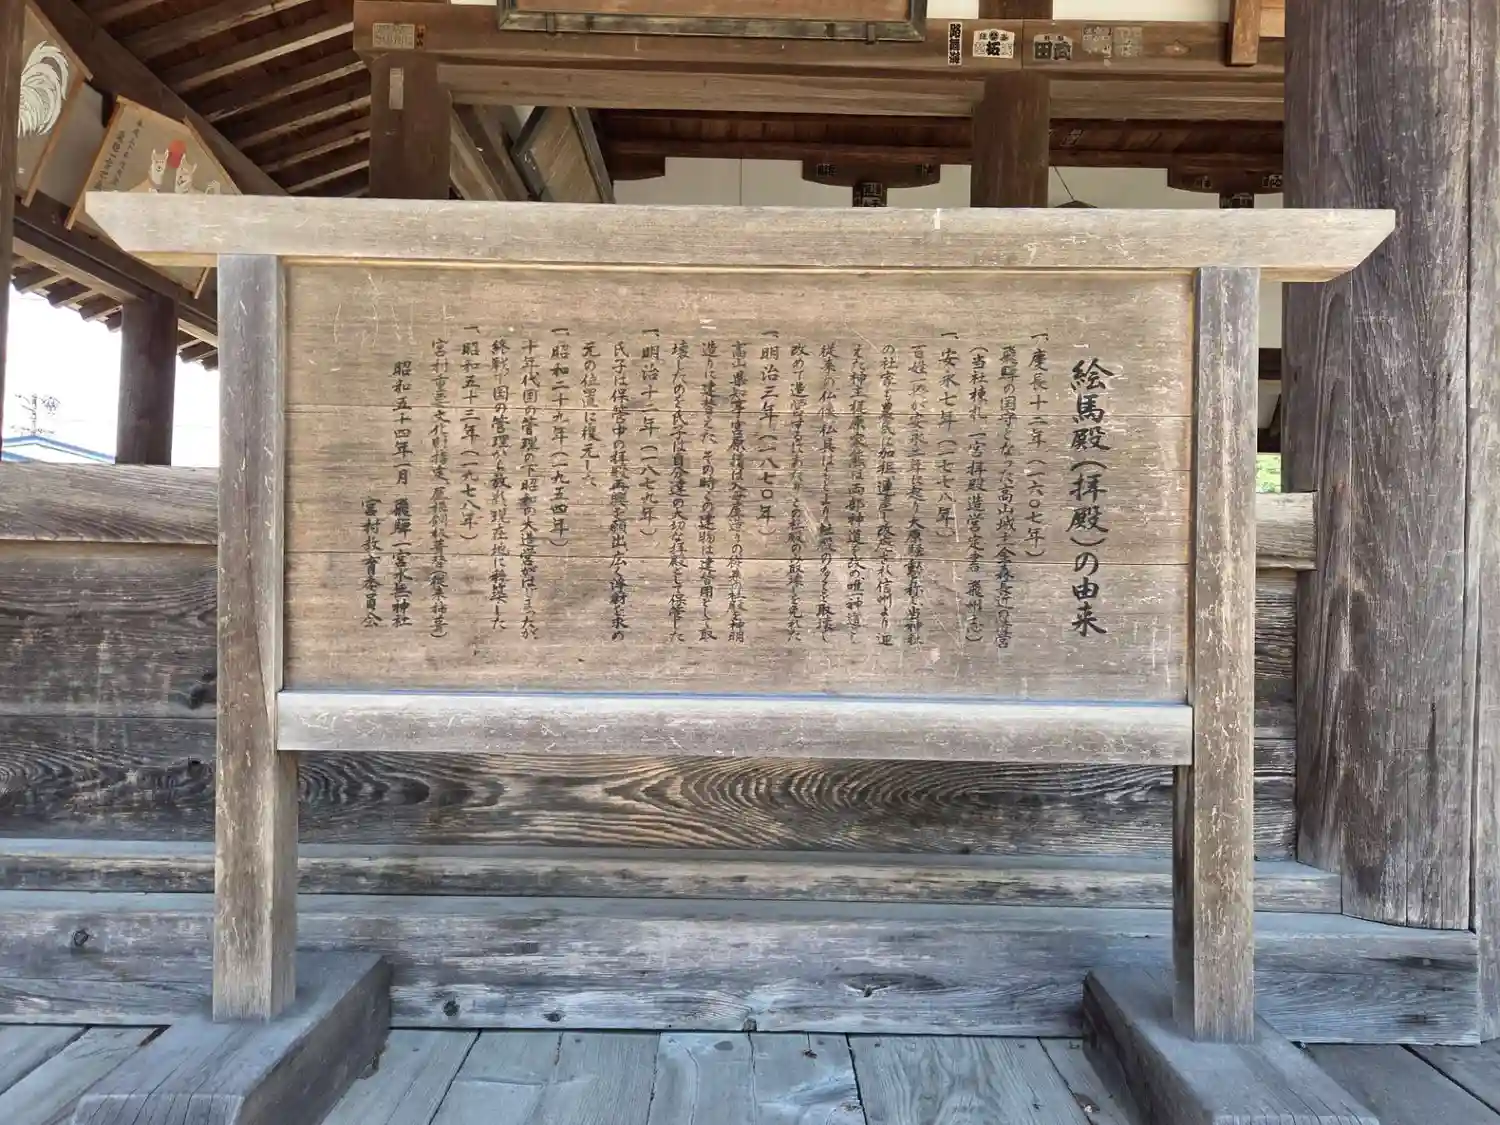 絵馬殿(拝殿)の由来
一、慶長十二年(一六〇七年)
飛騨の国守となった高山城主金森長近の造営
(当社棟札 一宮拝殿造営定書 飛州志)
一、安永七年(一七七八年)
百姓一揆が安永二年に起り大原騒動と称し当神社
の社家も農民に加担
従来の仏像仏具はもとより社殿のの多くを取壊し
改めて造営するにあたりこの社殿のみ取壊しを免れた
一、明治三年(一八七〇年)
高山県知事宮原積は入母屋造りの従来の社殿を神明
造りに建替えた その時この建物は建替用として取
壊したのを氏子は自分達の大切な拝殿として保管した
一、明治十二年(一八七九年)
氏子は保管中の拝殿再興を願出広く浄財を求め
元の位置に復元した
一、昭和二十九年(一九五四年)
十年代国の管理の下昭和の大造営がはじまったが
終戦で国の管理から離れ現在地に移築した
一、昭和五十三年(一九七八年)
宮村重要文化財指定
昭和五十四年一月 飛騨一宮水無神社
宮村教育委員会